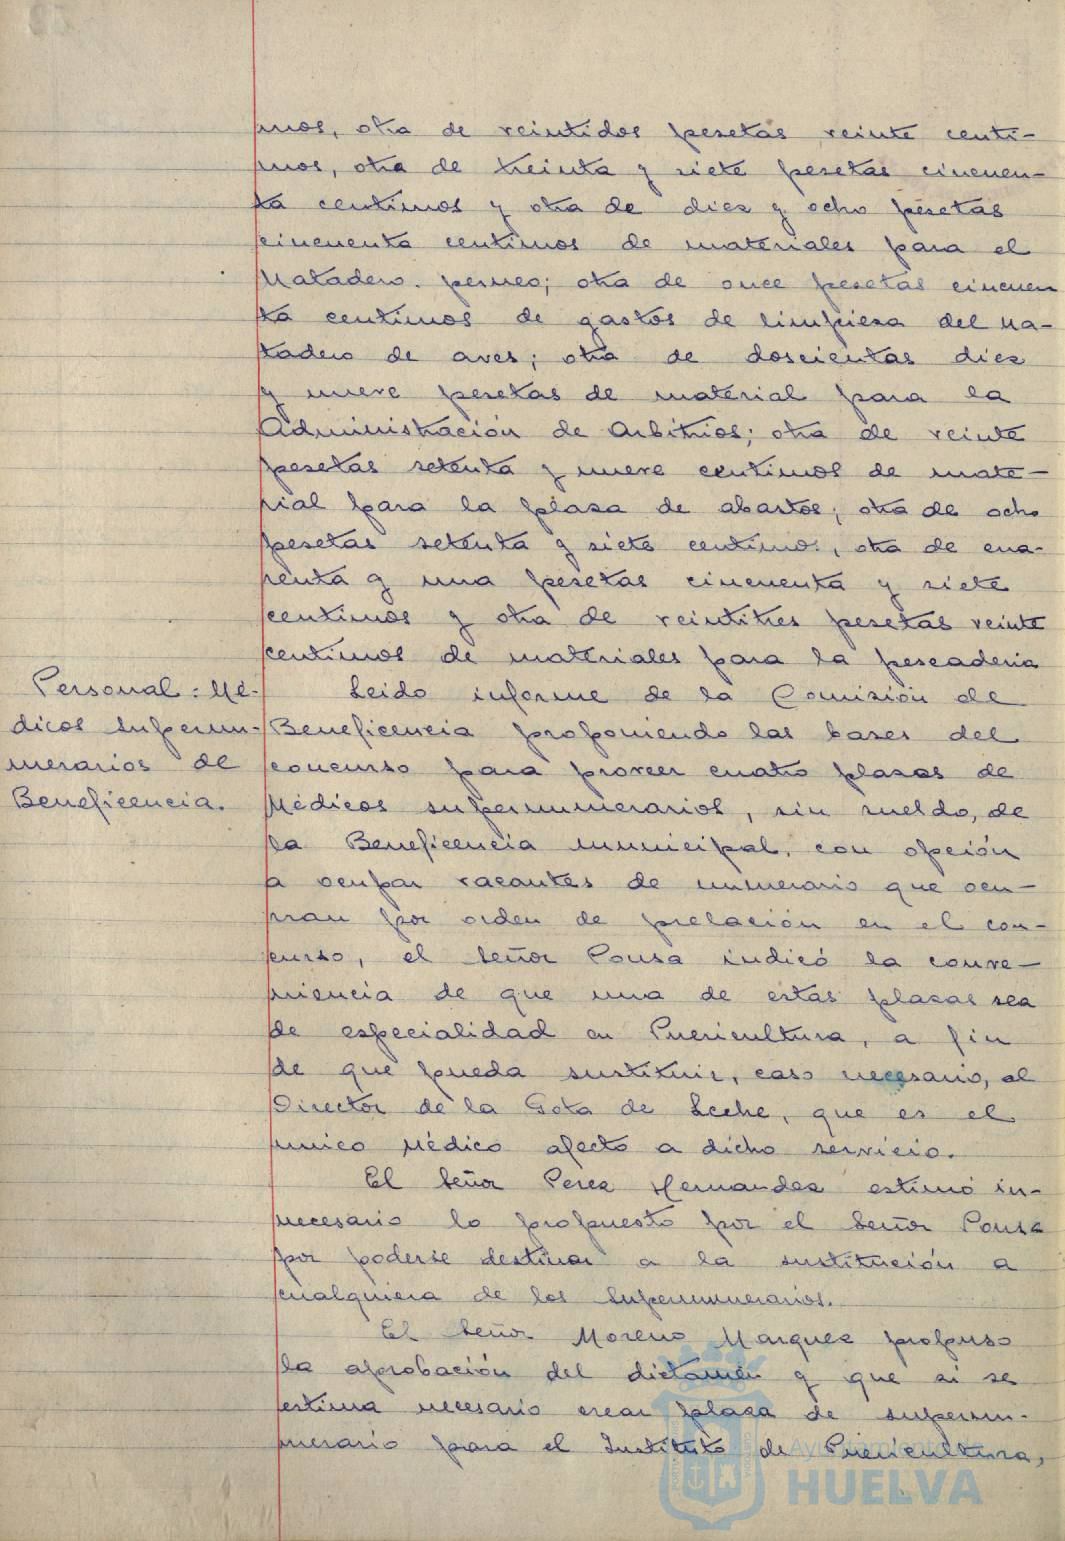 mos, otra de veintidos pesetas veinte centi-
mos, otra de treinta y siete pesetas cincuen-
ta centimos y otra de diez y ocho pesetas
cincuenta centimos de materiales para el
Matadero. perneo; otra de once pesetas cincuen
ta centimos de gastos de limpieza del Ma-
tadero de aves; otra de doscientas diez
y nueve pesetas de material para la
Administración de Arbitrios; otra de veinte
pesetas setenta y nueve centimos de mate-
rial para la plaza de abastos; otra de ocho
pesetas setenta y siete centimos, otra de cua-
renta y una pesetas cincuenta y siete
centimos y otra de veintitres pesetas veinte
centimos de materiales para la pescaderia
Personal: Mé-
dicos supernu-
merarios de
Beneficencia.
Leido informe de la Comisión de
Beneficencia proponiendo las bases del
concurso para proveer cuatro plazas de
Médicos supernumerarios, sin sueldo, de
la Beneficencia municipal, con opción
a ocupar vacantes de numerario que ocu-
rran por orden de prelación en el con-
curso, el Señor Pousa indicó la conve-
niencia de que una de estas plazas sea
de especialidad en Puericultura, a fin
de que pueda sustituir, caso necesario, al
Director de la Gota de Leche, que es el
unico Médico afecto a dicho servicio.
El Señor Perez Hernandez estimó in-
necesario lo propuesto por el Señor Pousa
por poderse destinar a la sustitución a
cualquiera de los Supernumerarios.
El Señor Moreno Marquez propuso
la aprobación del dictamen y que si se
estima necesario crear plaza de supernu-
merario para el Instituto de Puericultura,
Ayuntamiento de
HUELVA